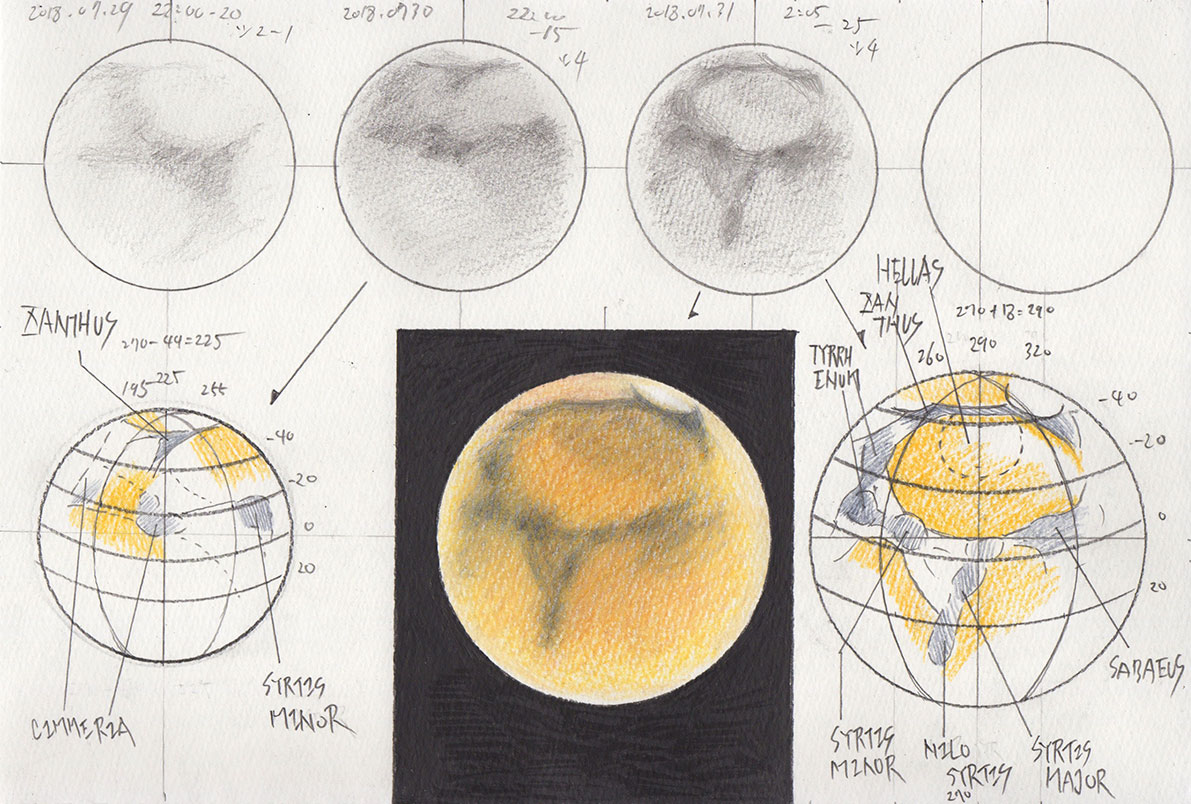 2018.07.29 22:00-20
2~1
2018.07.30 22:00
-15
4
2018.07.31 2:05
-25
4
XANTHUS
270-44=225
195 225 255
-40
-20
0
20
CIMMERIA
SYRTIS
MINOR
HELLAS
XAN
THUS
270+18=290
TYRRH
ENUM
260 290 320
-40
-20
0
20
SABAEUS
SYRTIS
MINOR
NILO
SYRTIS
270
SYRTIS
MAJOR